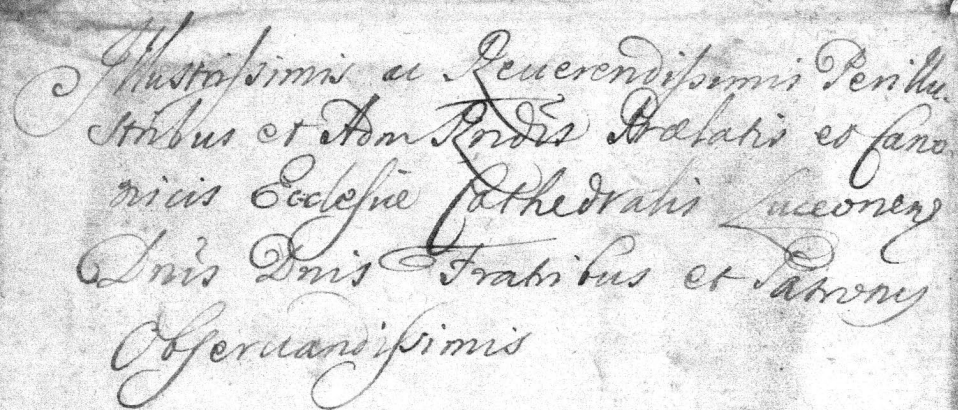 Illustrissimis ac Reuerendissimis Perillu-
stribus et Adm Rndis Prælatis et Cano
nicis Ecclesiæ Cathedralis Luceonen
Dnis Dnis Fratribus et Patronis
Obseruandissimis